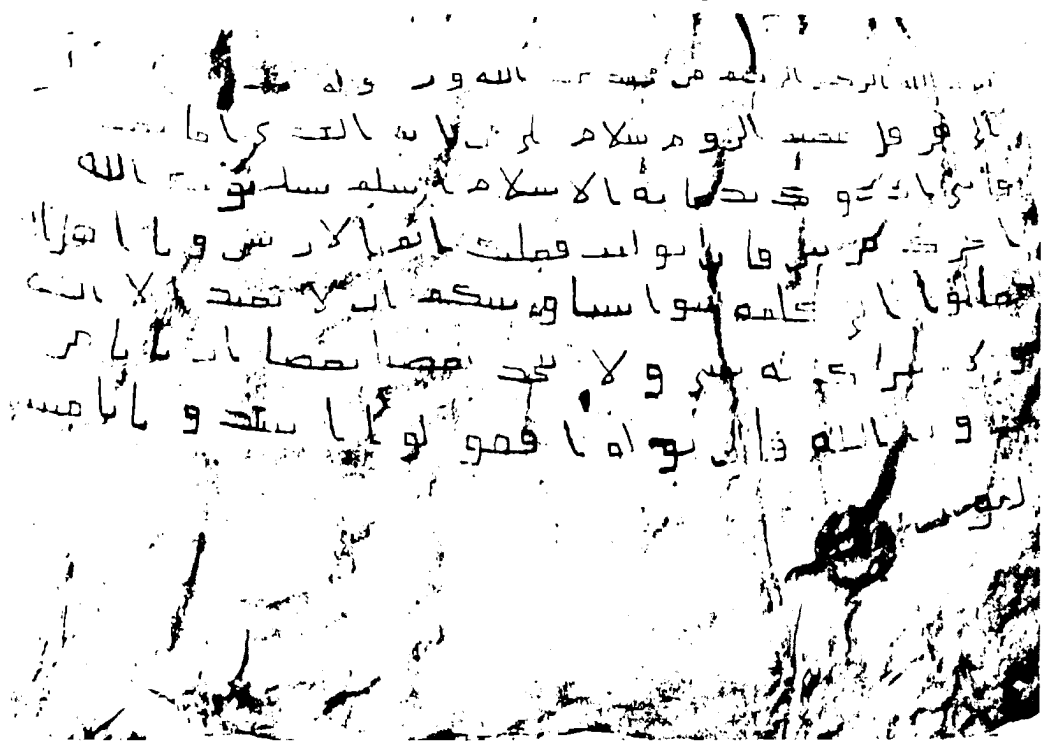 بسم الله الرحمن الرحيم من محمد عبد الله ورسوله
الى هرقل عظيم الروم سلام على من اتبع الهدى اما بعد
فانى ادعوك بدعاية الاسلام اسلم تسلم يوتك الله
اجرك مرتين فان توليت فعليك اثم الاريسين ويا اهل
تعالوا الى كلمة سوا بيننا وبينكم ان لا نعبد الا الله
ولا نشرك به شيا ولا يتخذ بعضنا بعضا اربابا من
دون الله فان تولوا فقولوا اشهدوا بانا